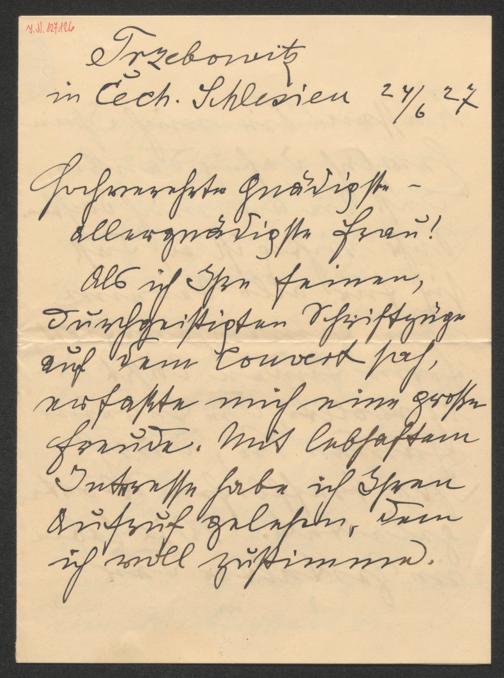 J.N. 127126
Trzebowitz
in Čech. Schlesien 24/6 27
Hochverehrte gnädigste –
allergnädigste Frau!
Als ich Ihre feinen,
durchgeistigten Schriftzüge
auf dem Couvert sah,
erfaßte mich eine große
Freude. Mit lebhaftem
Interesse habe ich Ihren
Aufruf gelesen, dem
ich voll zustimme.